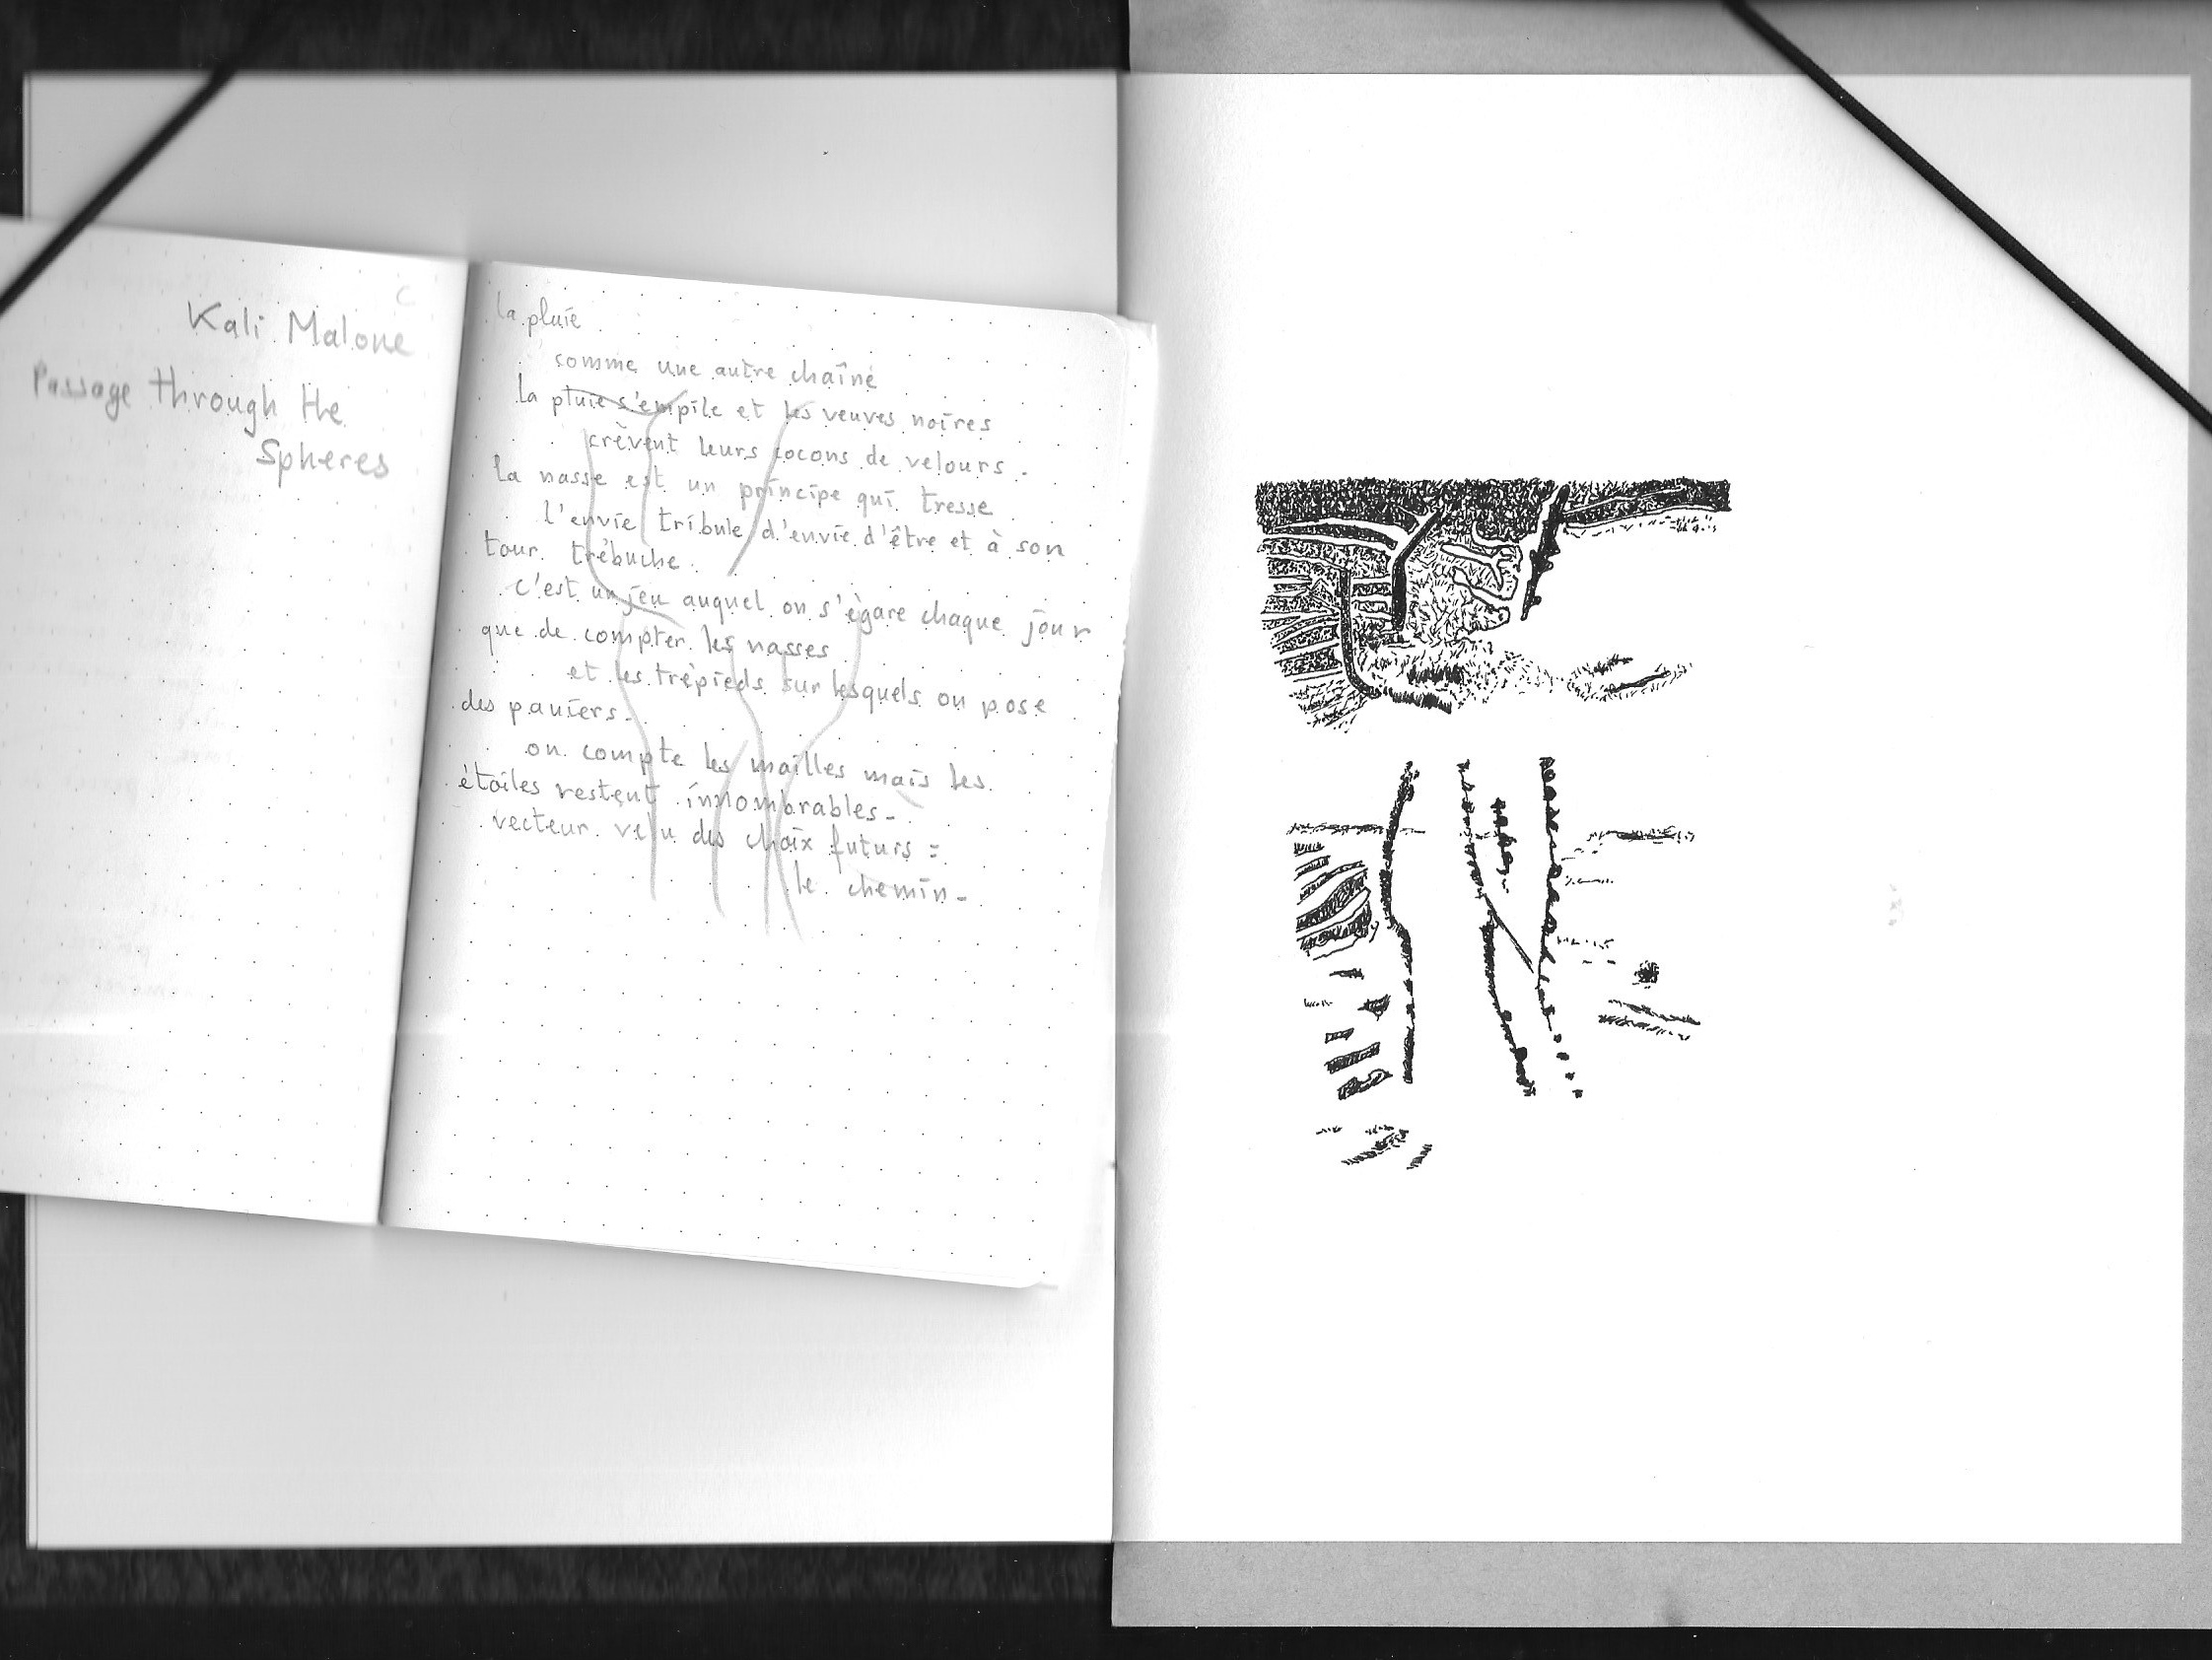 Kali Malone
Passage through the
Spheres
la pluie
somme une autre chaîne
la pluie s'empile et les veuves noires
crèvent leurs cocons de velours.
la nasse est un principe qui tresse
l'envie tribule d'envie d'être et à son
tour trébuche
c'est un jeu auquel on s'égare chaque jour
que de compter les nasses
et les trépieds sur lesquels on pose
des paniers.
on compte les mailles mais les
étoiles restent innombrables-
vecteur velu des choix futurs =
le chemin-